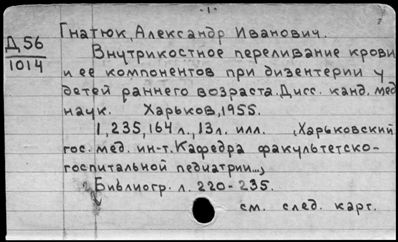 -1-
Гнатюк, Александр Иванович.
Д 56
1014
Внутрикостное переливание крови
и ее компонентов при дизентерии у
детей раннего возраста. Дисс. канд. мед
наук. Харьков, 1955.
1, 235, 164 л., 13 л. илл. , Харьковский
гос. мед. ин-т. Кафедра факультетско-
госпитальной педиатрии...,
Библиогр. л. 220-235.
см. след. карт.